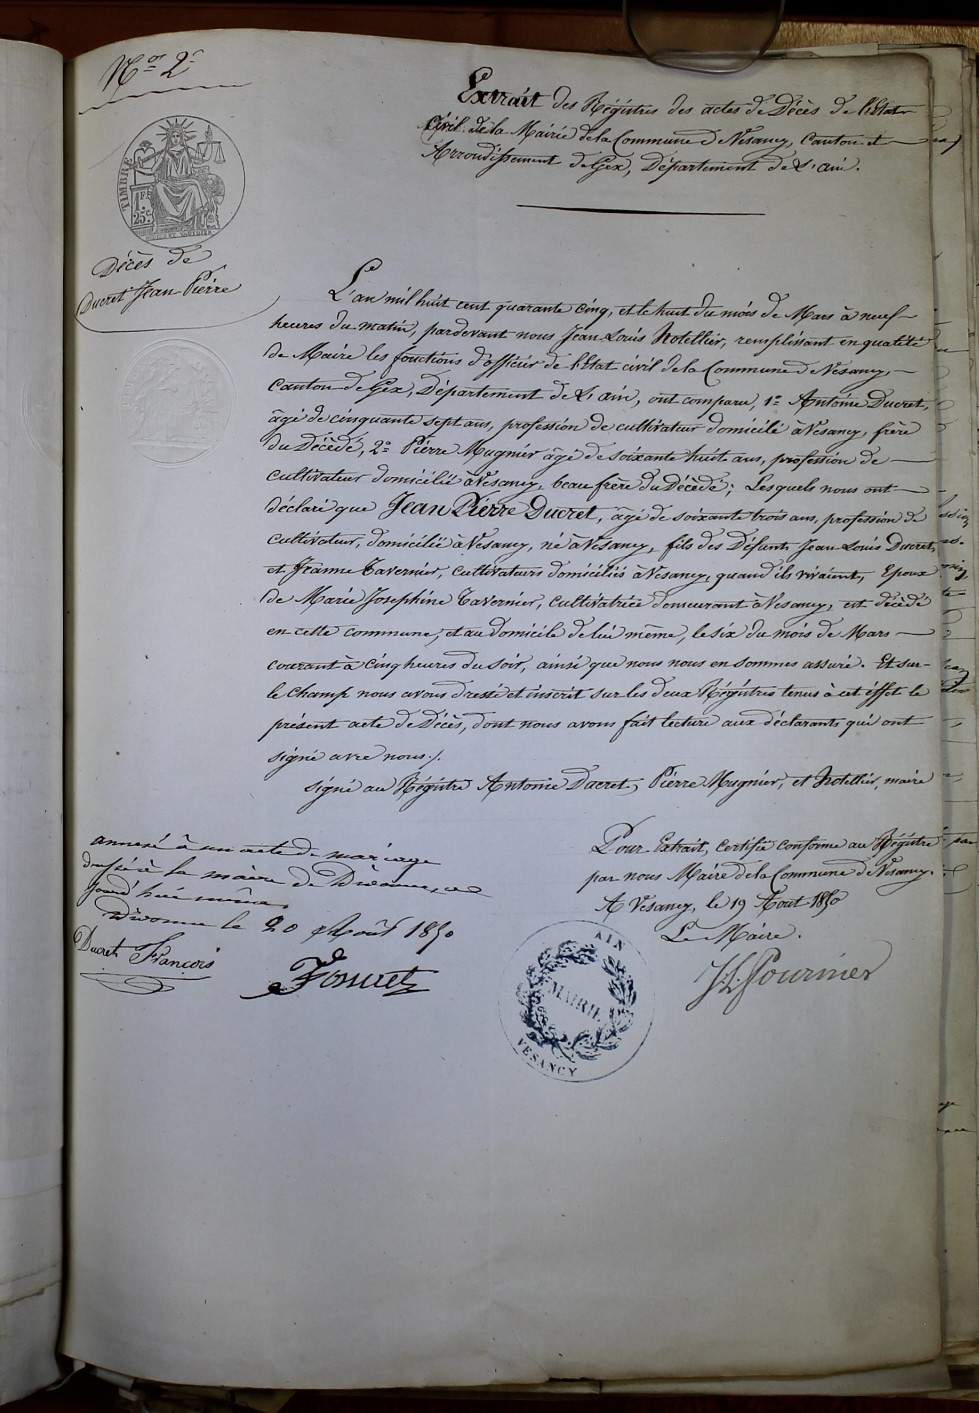 N.° 2.e
Extrait des Régistres des actes de Décès de l'Etat
Civil de la Mairie de la Commune de Vesancy, Canton et
Arrondissement de Gex, Département de L'ain.
TIMBRE
1 FR.
25 C.
Décès de
Ducret Jean Pierre
L'an mil huit cent quarante cinq, et le huit du mois de Mars à neuf
heures du matin, pardevant nous Jean Louis Hotellier, remplissant en qualité
de Maire les fonctions d'officier de l'Etat civil de la Commune de Vesancy,
Canton de Gex, Département de L'ain, ont comparu, 1.° Antoine Ducret,
âgé de cinquante sept ans, profession de cultivateur domicilié à Vesancy, frère
du Décédé, 2.° Pierre Mugnier âgé de soixante huit ans, profession de
cultivateur domicilié à Vesancy, beau frère du Décédé; Lesquels nous ont
déclaré que Jean Pierre Ducret, âgé de soixante trois ans, profession de
cultivateur, domicilié à Vesancy, né à Vesancy, fils des Défunts Jean Louis Ducret,
et Jeanne Tavernier, cultivateurs domiciliés à Vesancy, quand ils vivaient, Epoux
de Marie Josephine Tavernier, cultivatrice demeurant à Vesancy, est décédé
en cette commune, et au domicile de lui même, le six du mois de Mars
courant à cinq heures du soir, ainsi que nous nous en sommes assuré. Et sur-
le champ nous avons dressé et inscrit sur les deux Régistres tenus à cet éffet le
présent acte de Décès, dont nous avons fait lecture aux déclarants qui ont
signé avec nous./.
signé au Régistre Antoine Ducret, Pierre Mugnier, et Hotellier, maire
annexé à un acte de mariage
dressé à la mairie de Divonne, ce
jourd'hui même.
Divonne le 20 Août 1850
Ducret François
Pour Extrait, certifié conforme au Régistre
par nous Maire de la Commune de Vesancy.
A Vesancy, le 19 Aout 1850
Le Maire.
JL Fournier
AIN
MAIRIE
VESANCY